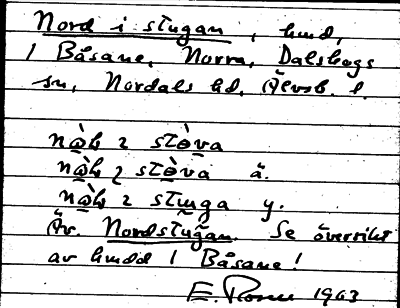 Nord i stugan, hmd,
1 Båsane, Norra, Dalskogs
sn, Nordals hd, Älvsb. l.
stöva
stöva ä.
stuga y.
Äv. Nordstugan. Se översikt
av hmdd 1 Båsane!
E. Rosm 1963